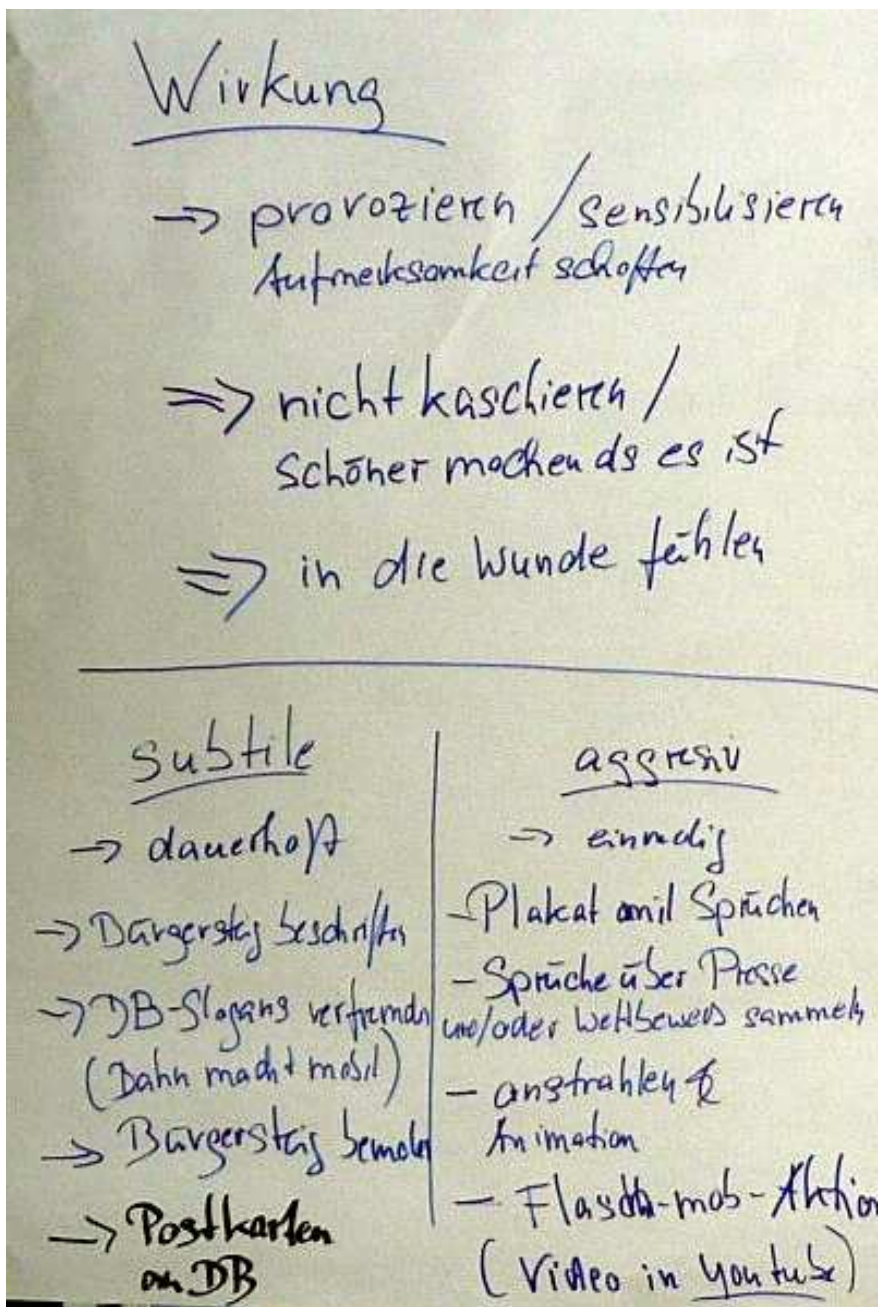 Wirkung
→ provozieren / sensibilisieren
Aufmerksamkeit schaffen
⇒ nicht kaschieren /
Schöner machen als es ist
⇒ in die Wunde fühlen
subtile
→ dauerhaft
→ Bürgersteig beschriften
→ DB-Slogans verfremden
(Bahn macht mobil)
→ Bürgersteig bemalen
→ Postkarten
an DB
aggresiv
→ einmalig
- Plakat mit Sprüchen
- Sprüche über Presse
und/oder Wettbewerb sammeln
- anstrahlen &
Animation
- Flasch-mob-Aktion
(Video in youtube)